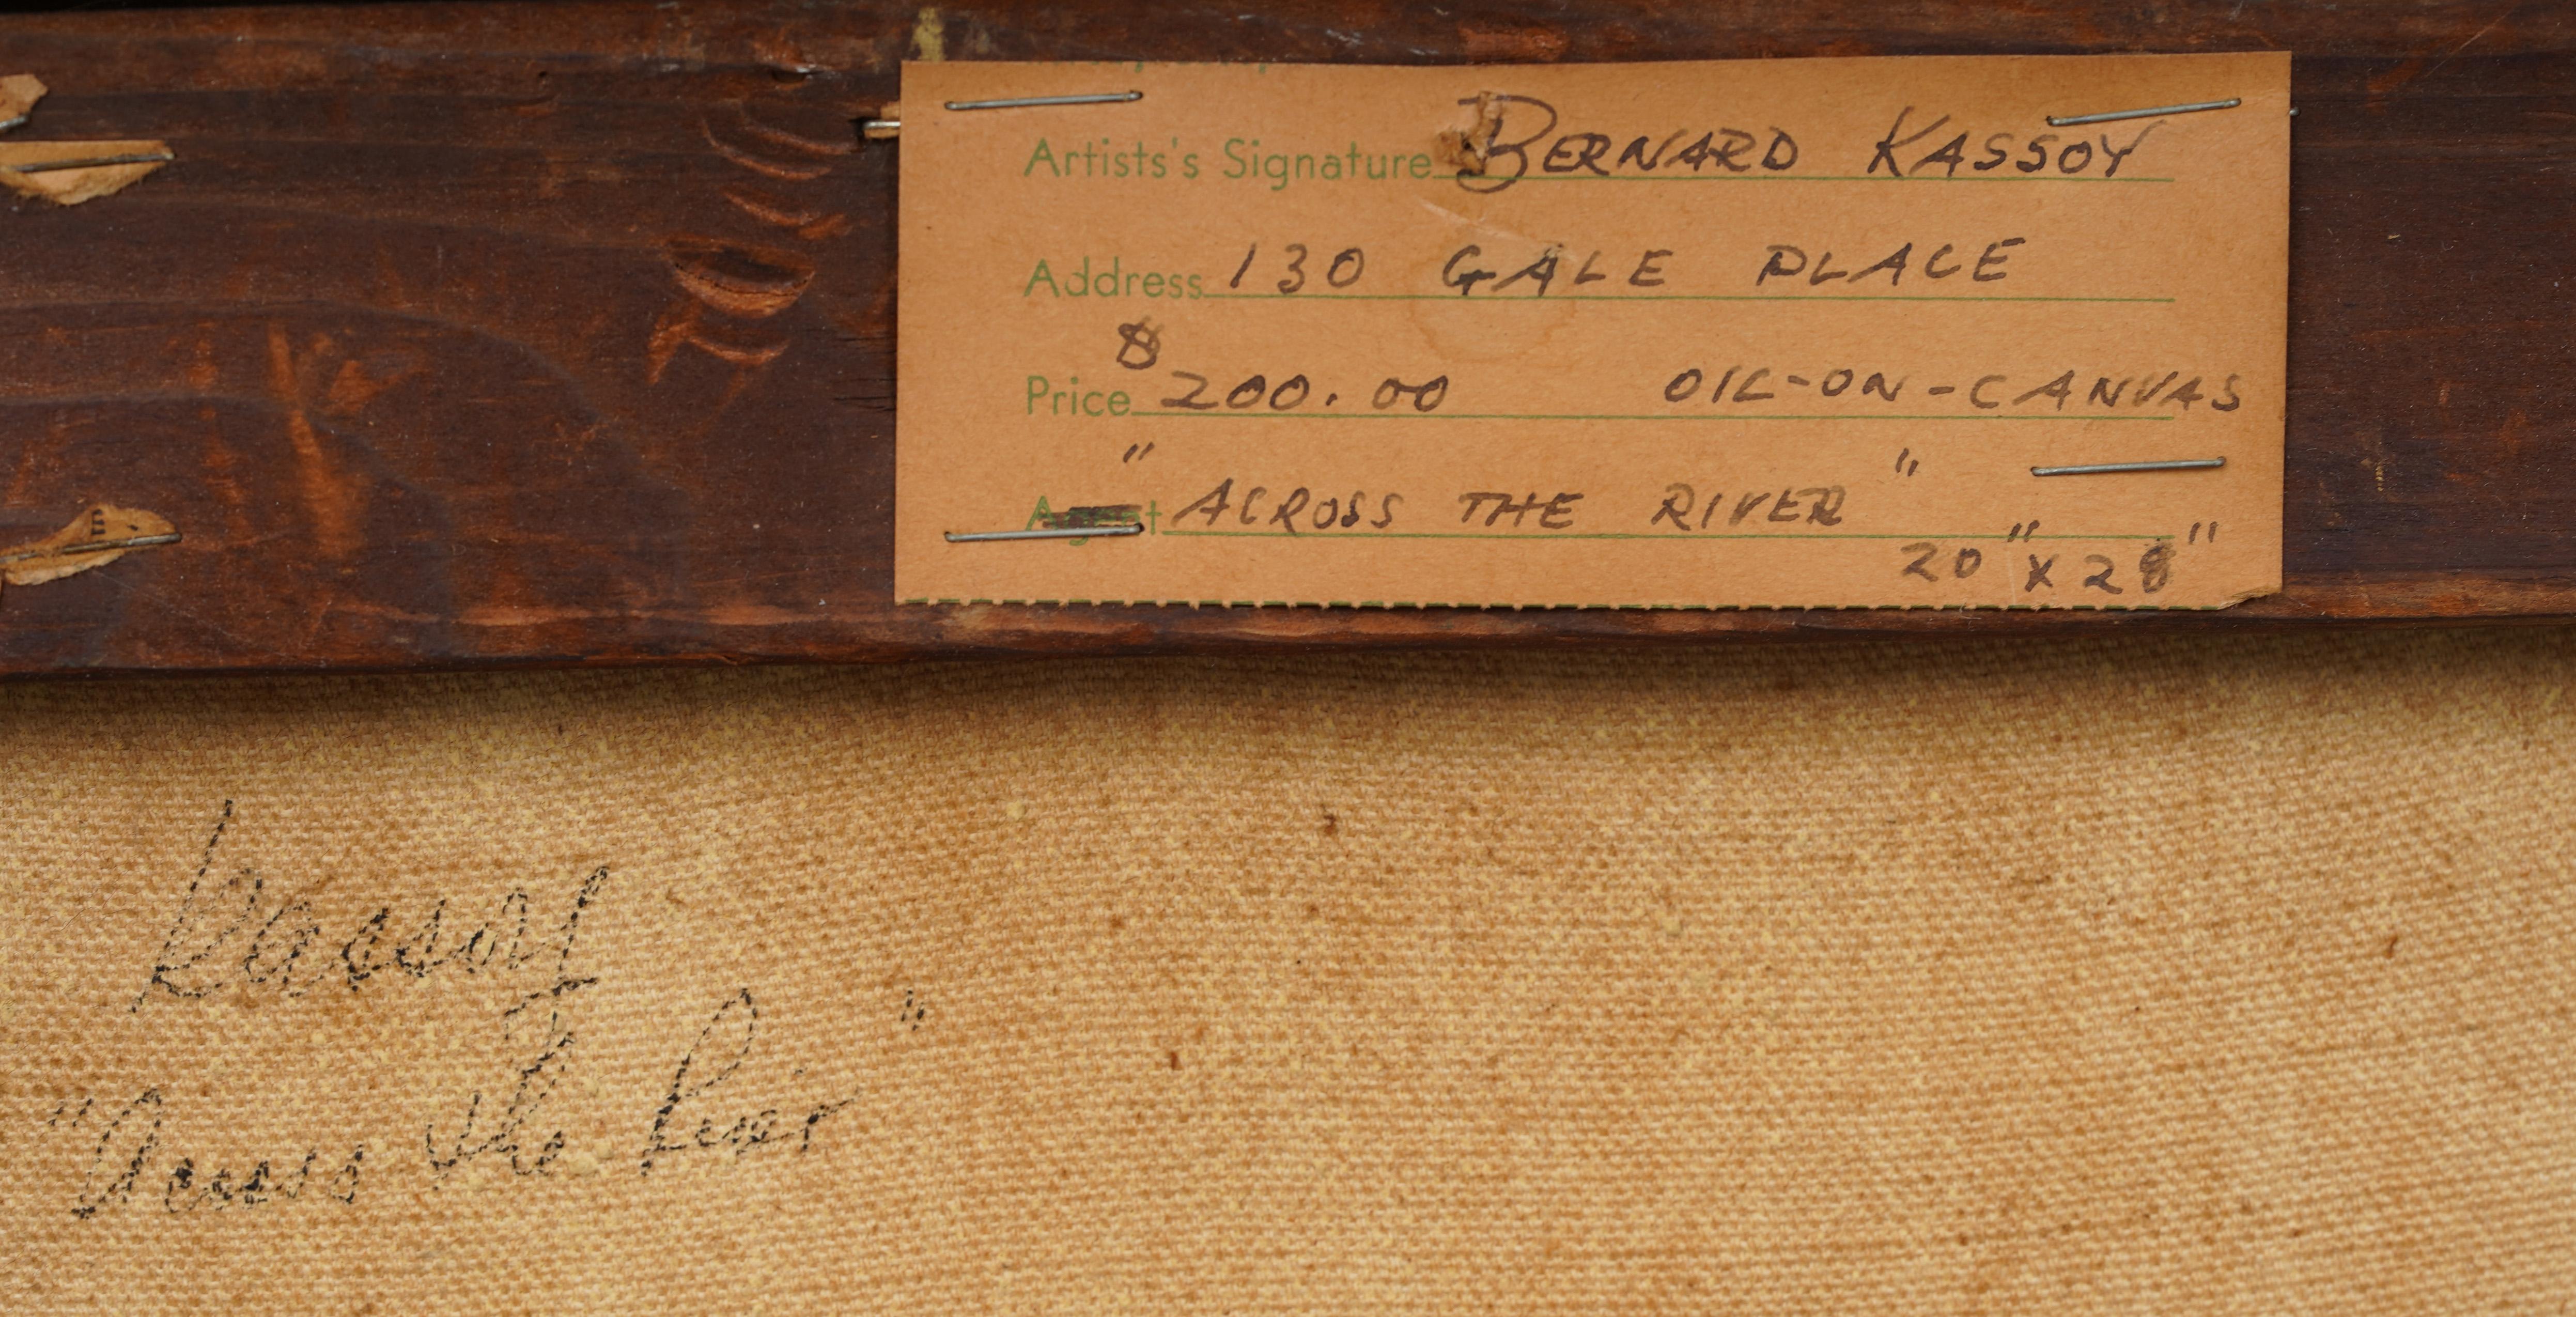 Artists's Signature BERNARD KASSOY
Address 130 GALE PLACE
Price $200.00 OIL-ON-CANVAS
Agent "ACROSS THE RIVER"
20" x 28"
Kassoy
"Across the River"